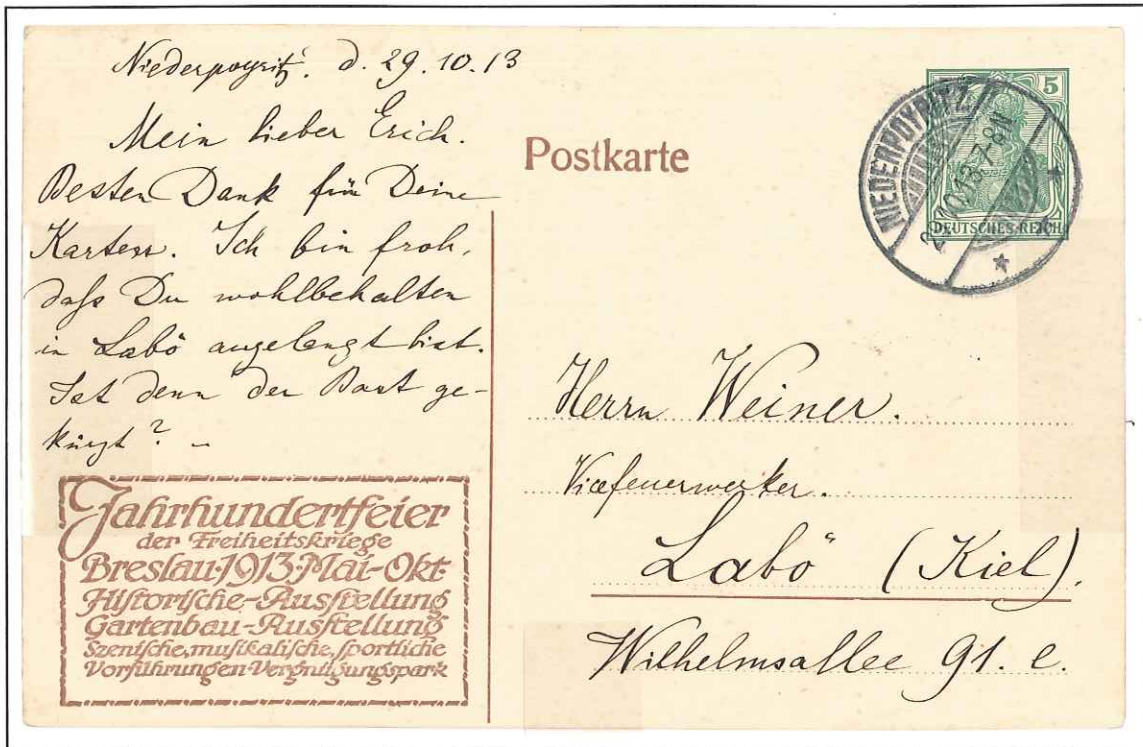 Niederpoyritz. d. 29.10.13
Mein lieber Erich.
Besten Dank für Deine
Karten. Ich bin froh,
daß Du wohlbehalten
in Labö angelangt bist.
Ist denn der Bart ge-
kürzt? –
Jahrhundertfeier
der Freiheitskriege
Breslau·1913·Mai-Okt
Historische-Ausstellung
Gartenbau-Ausstellung
Szenische, musikalische, sportliche
Vorführungen·Vergnügungspark
Postkarte
5
DEUTSCHES REICH
NIEDERPOYRITZ
10.13.7-8N
Herrn Weiner.
Vicefeuerwerker.
Labö (Kiel).
Wilhelmsallee 91. e.